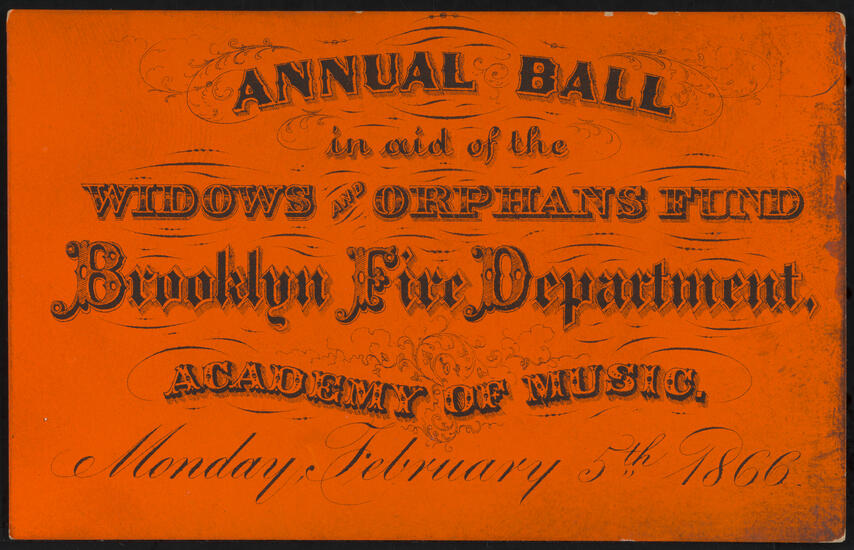 ANNUAL BALL
in aid of the
WIDOWS AND ORPHANS FUND
Brooklyn Fire Department,
ACADEMY OF MUSIC.
Monday, February 5th 1866